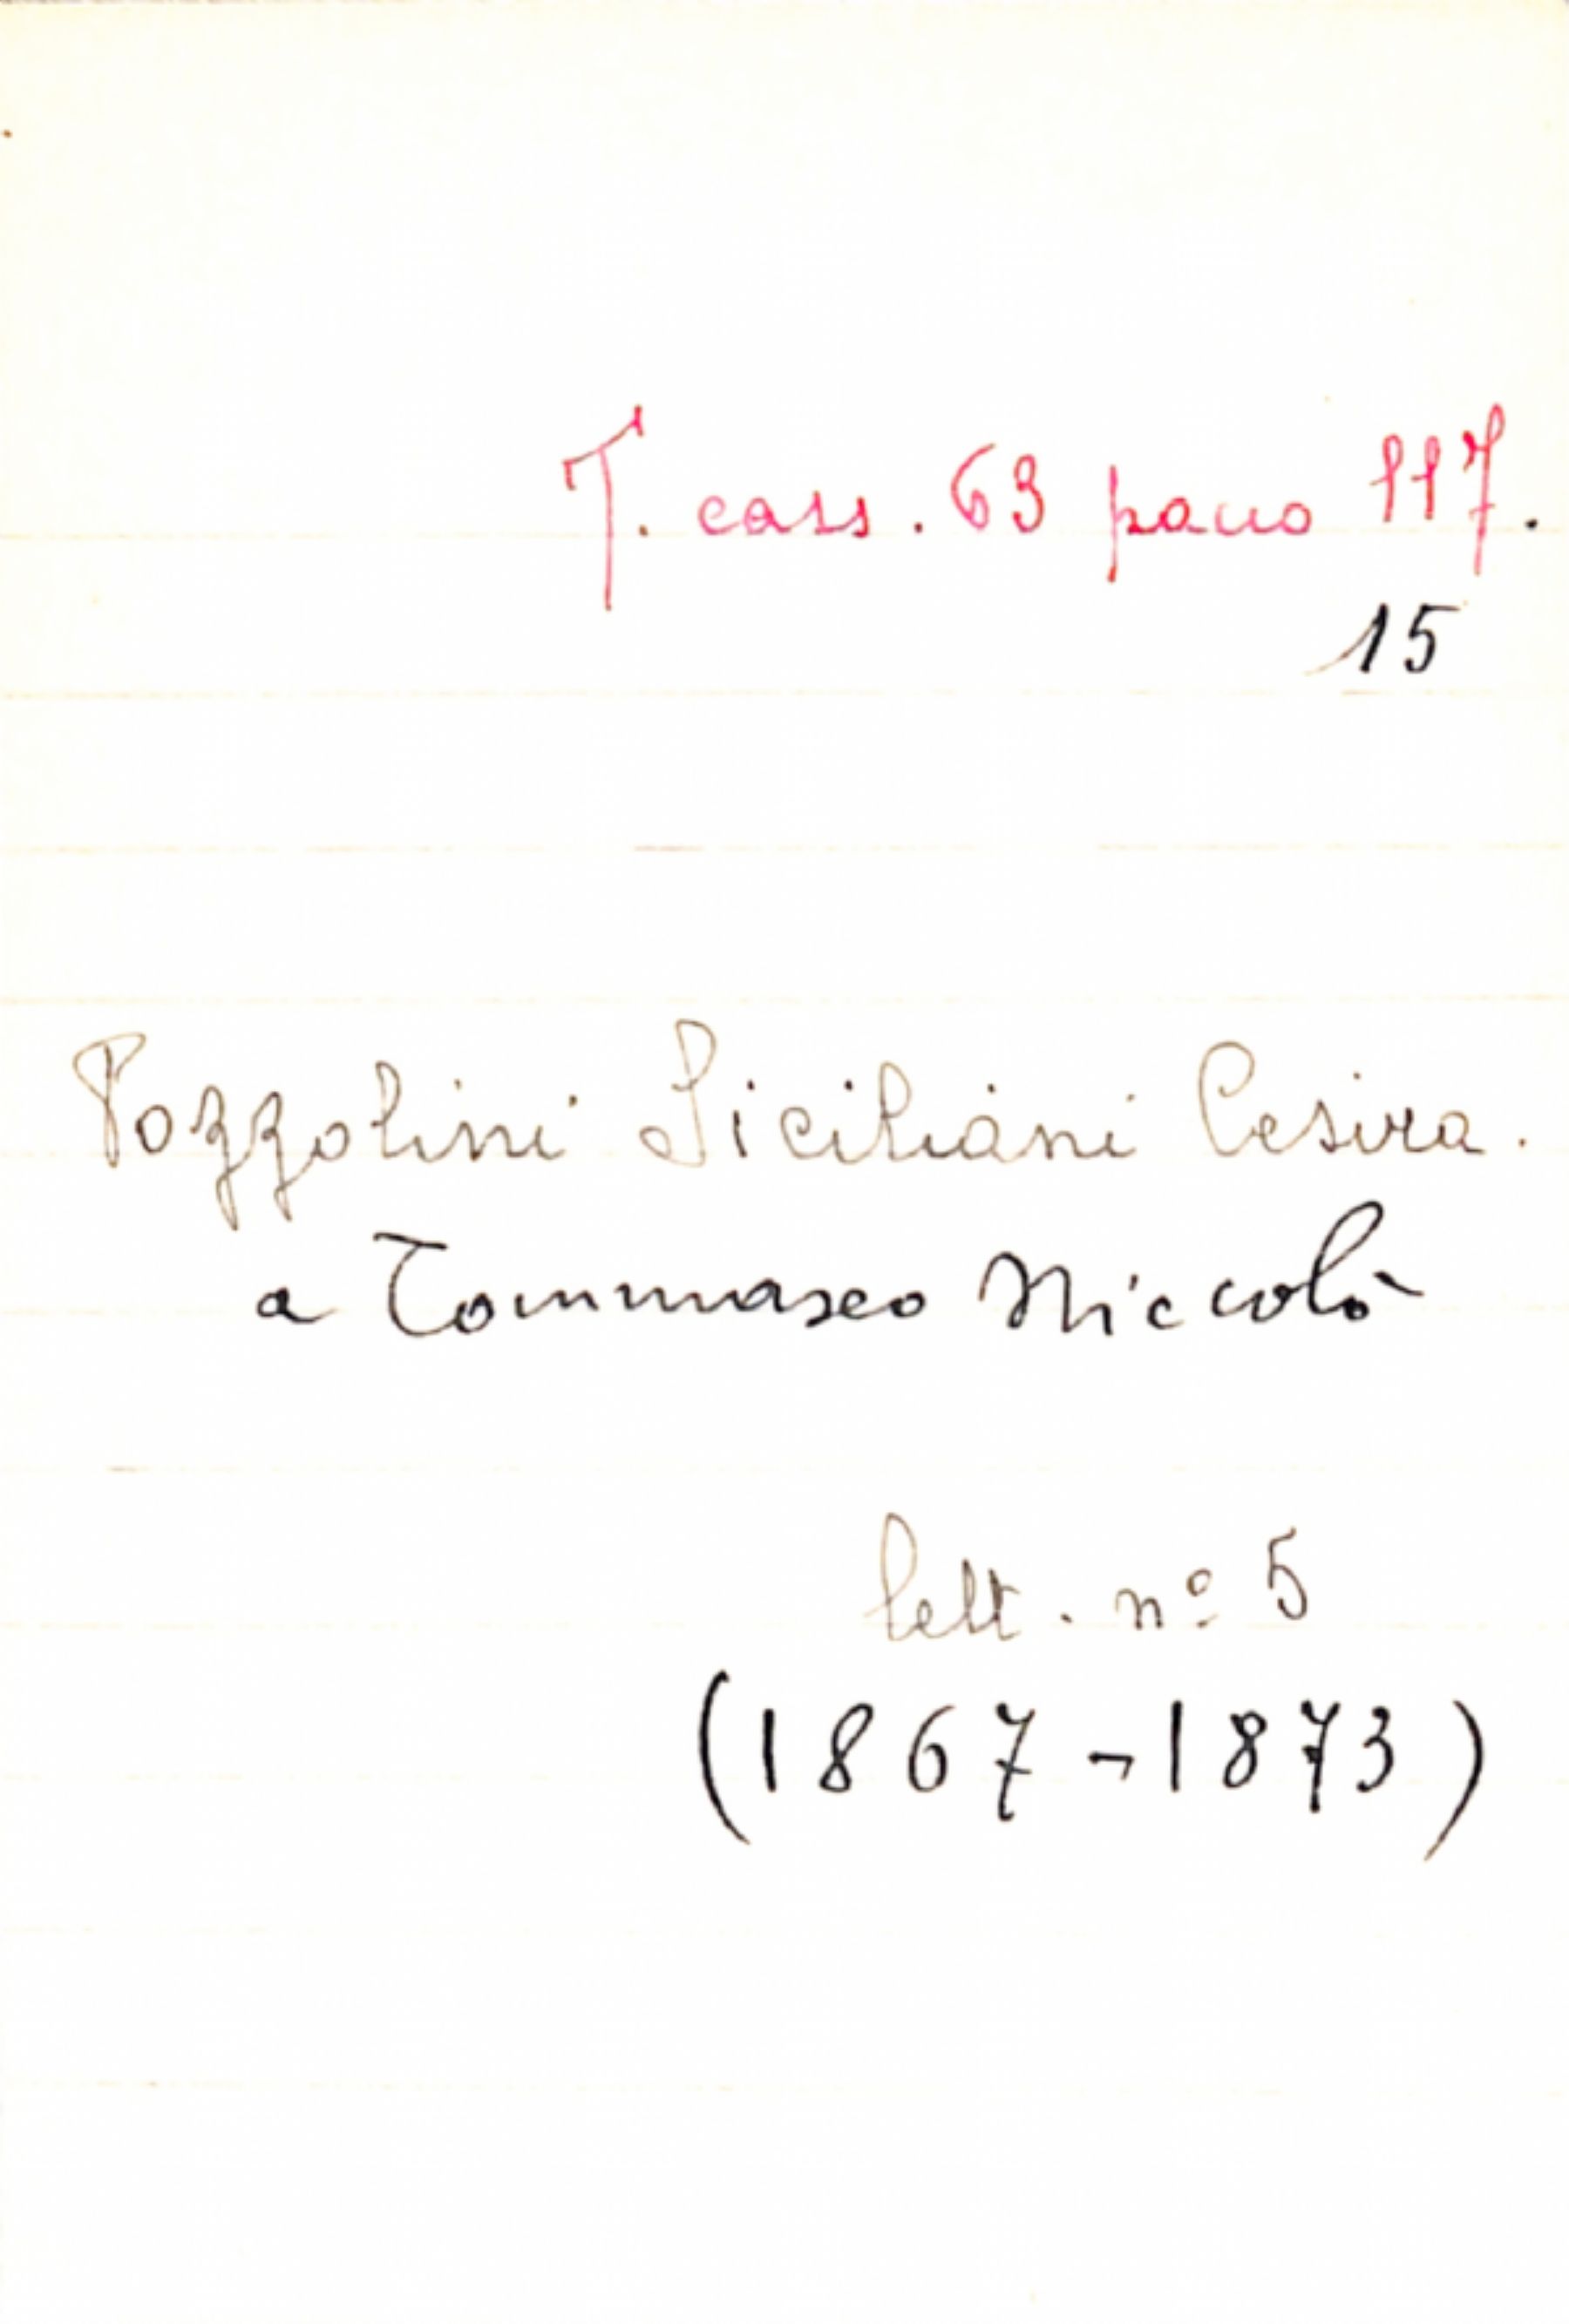 T. cass. 63 pacco 117.
15
Pozzolini Siciliani Cesira.
a Tommaseo Niccolò
lett. nº 5
(1867-1873)